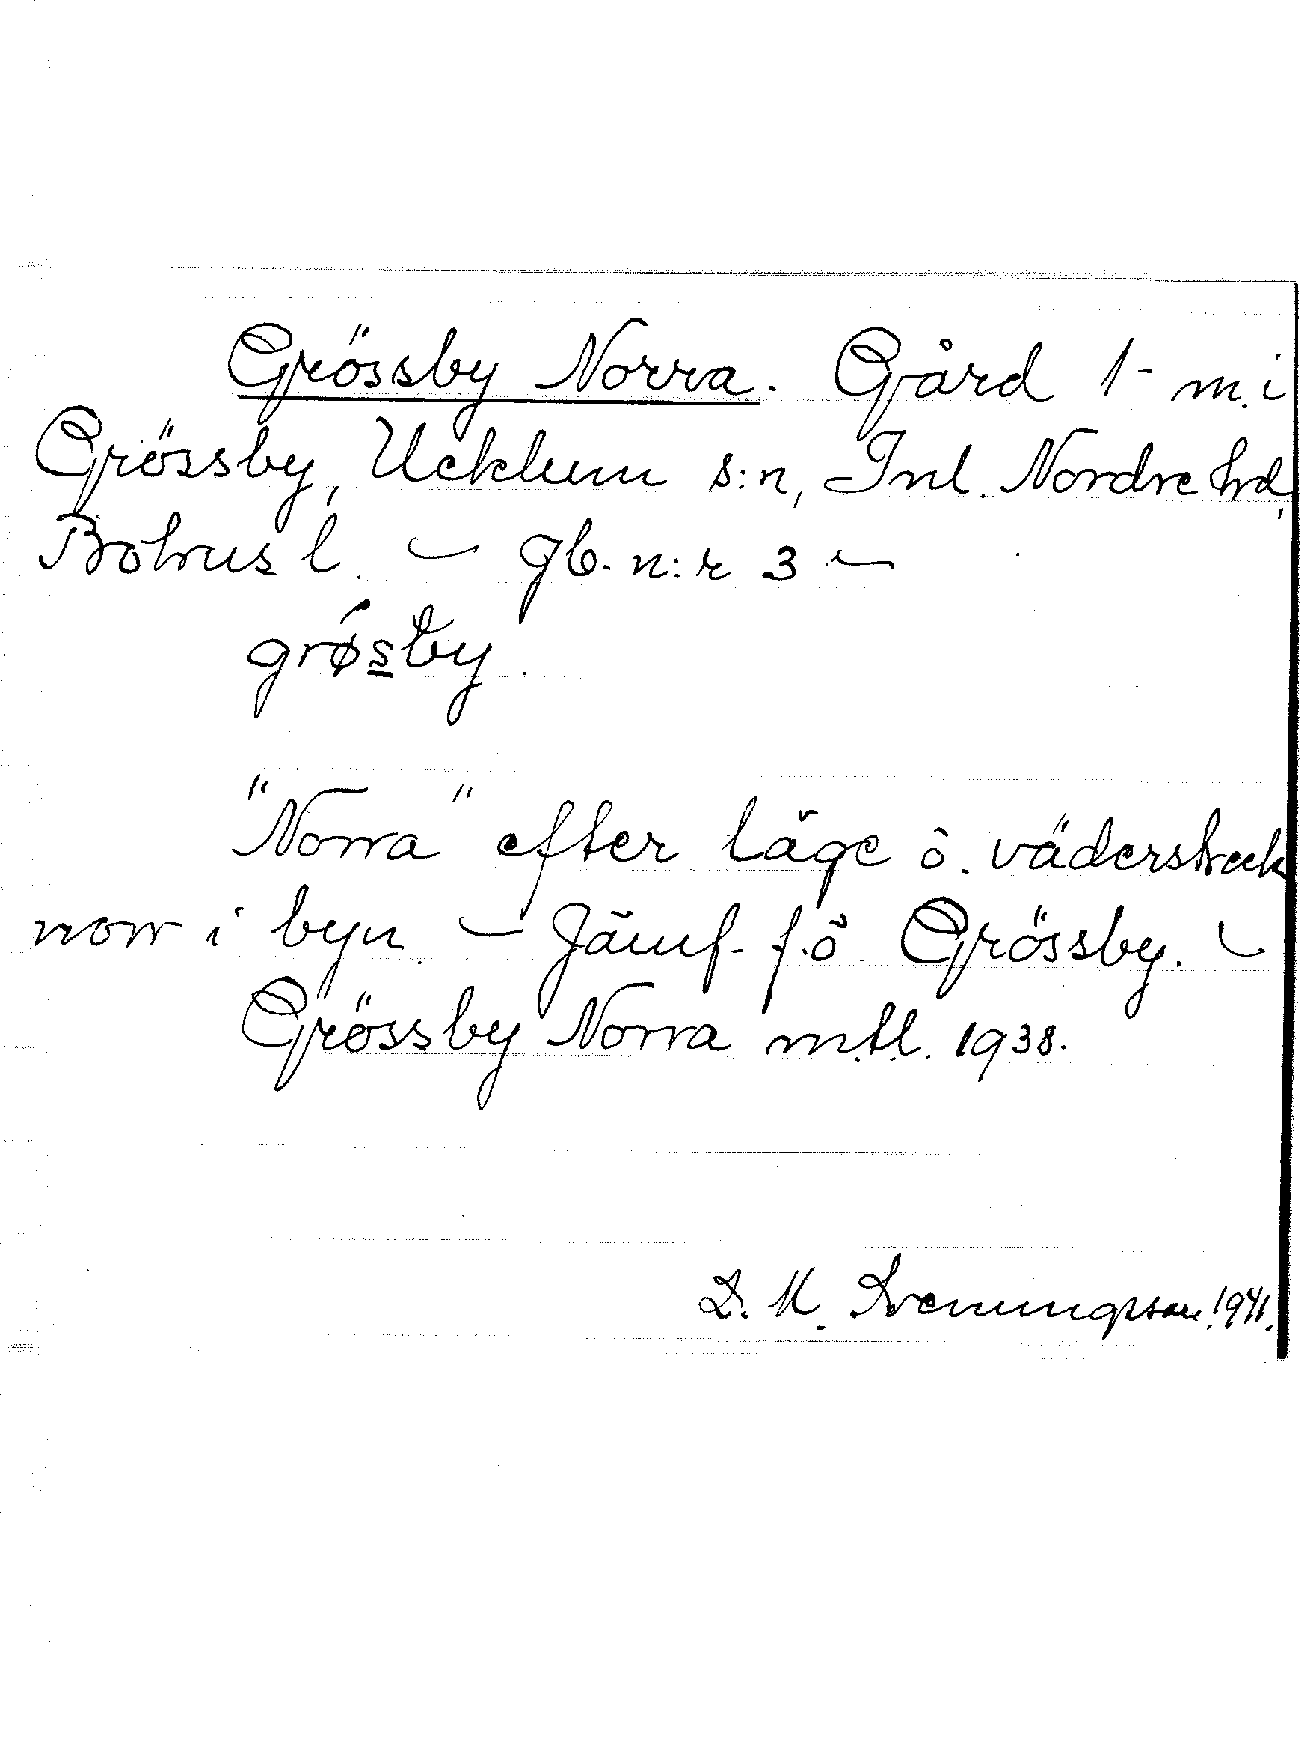 Grössby Norra. Gård 1- m. i
Grössby, Ucklum s:n, Inl. Nordre hrd,
Bohus l. – Jb. n:r 3 –
grø̀sby.
"Norra" efter läge ö. väderstreck
norr i byn. – Jämf. f.ö. Grössby. –
Grössby Norra mtl. 1938.
D. M. Svenungsson. 1941.